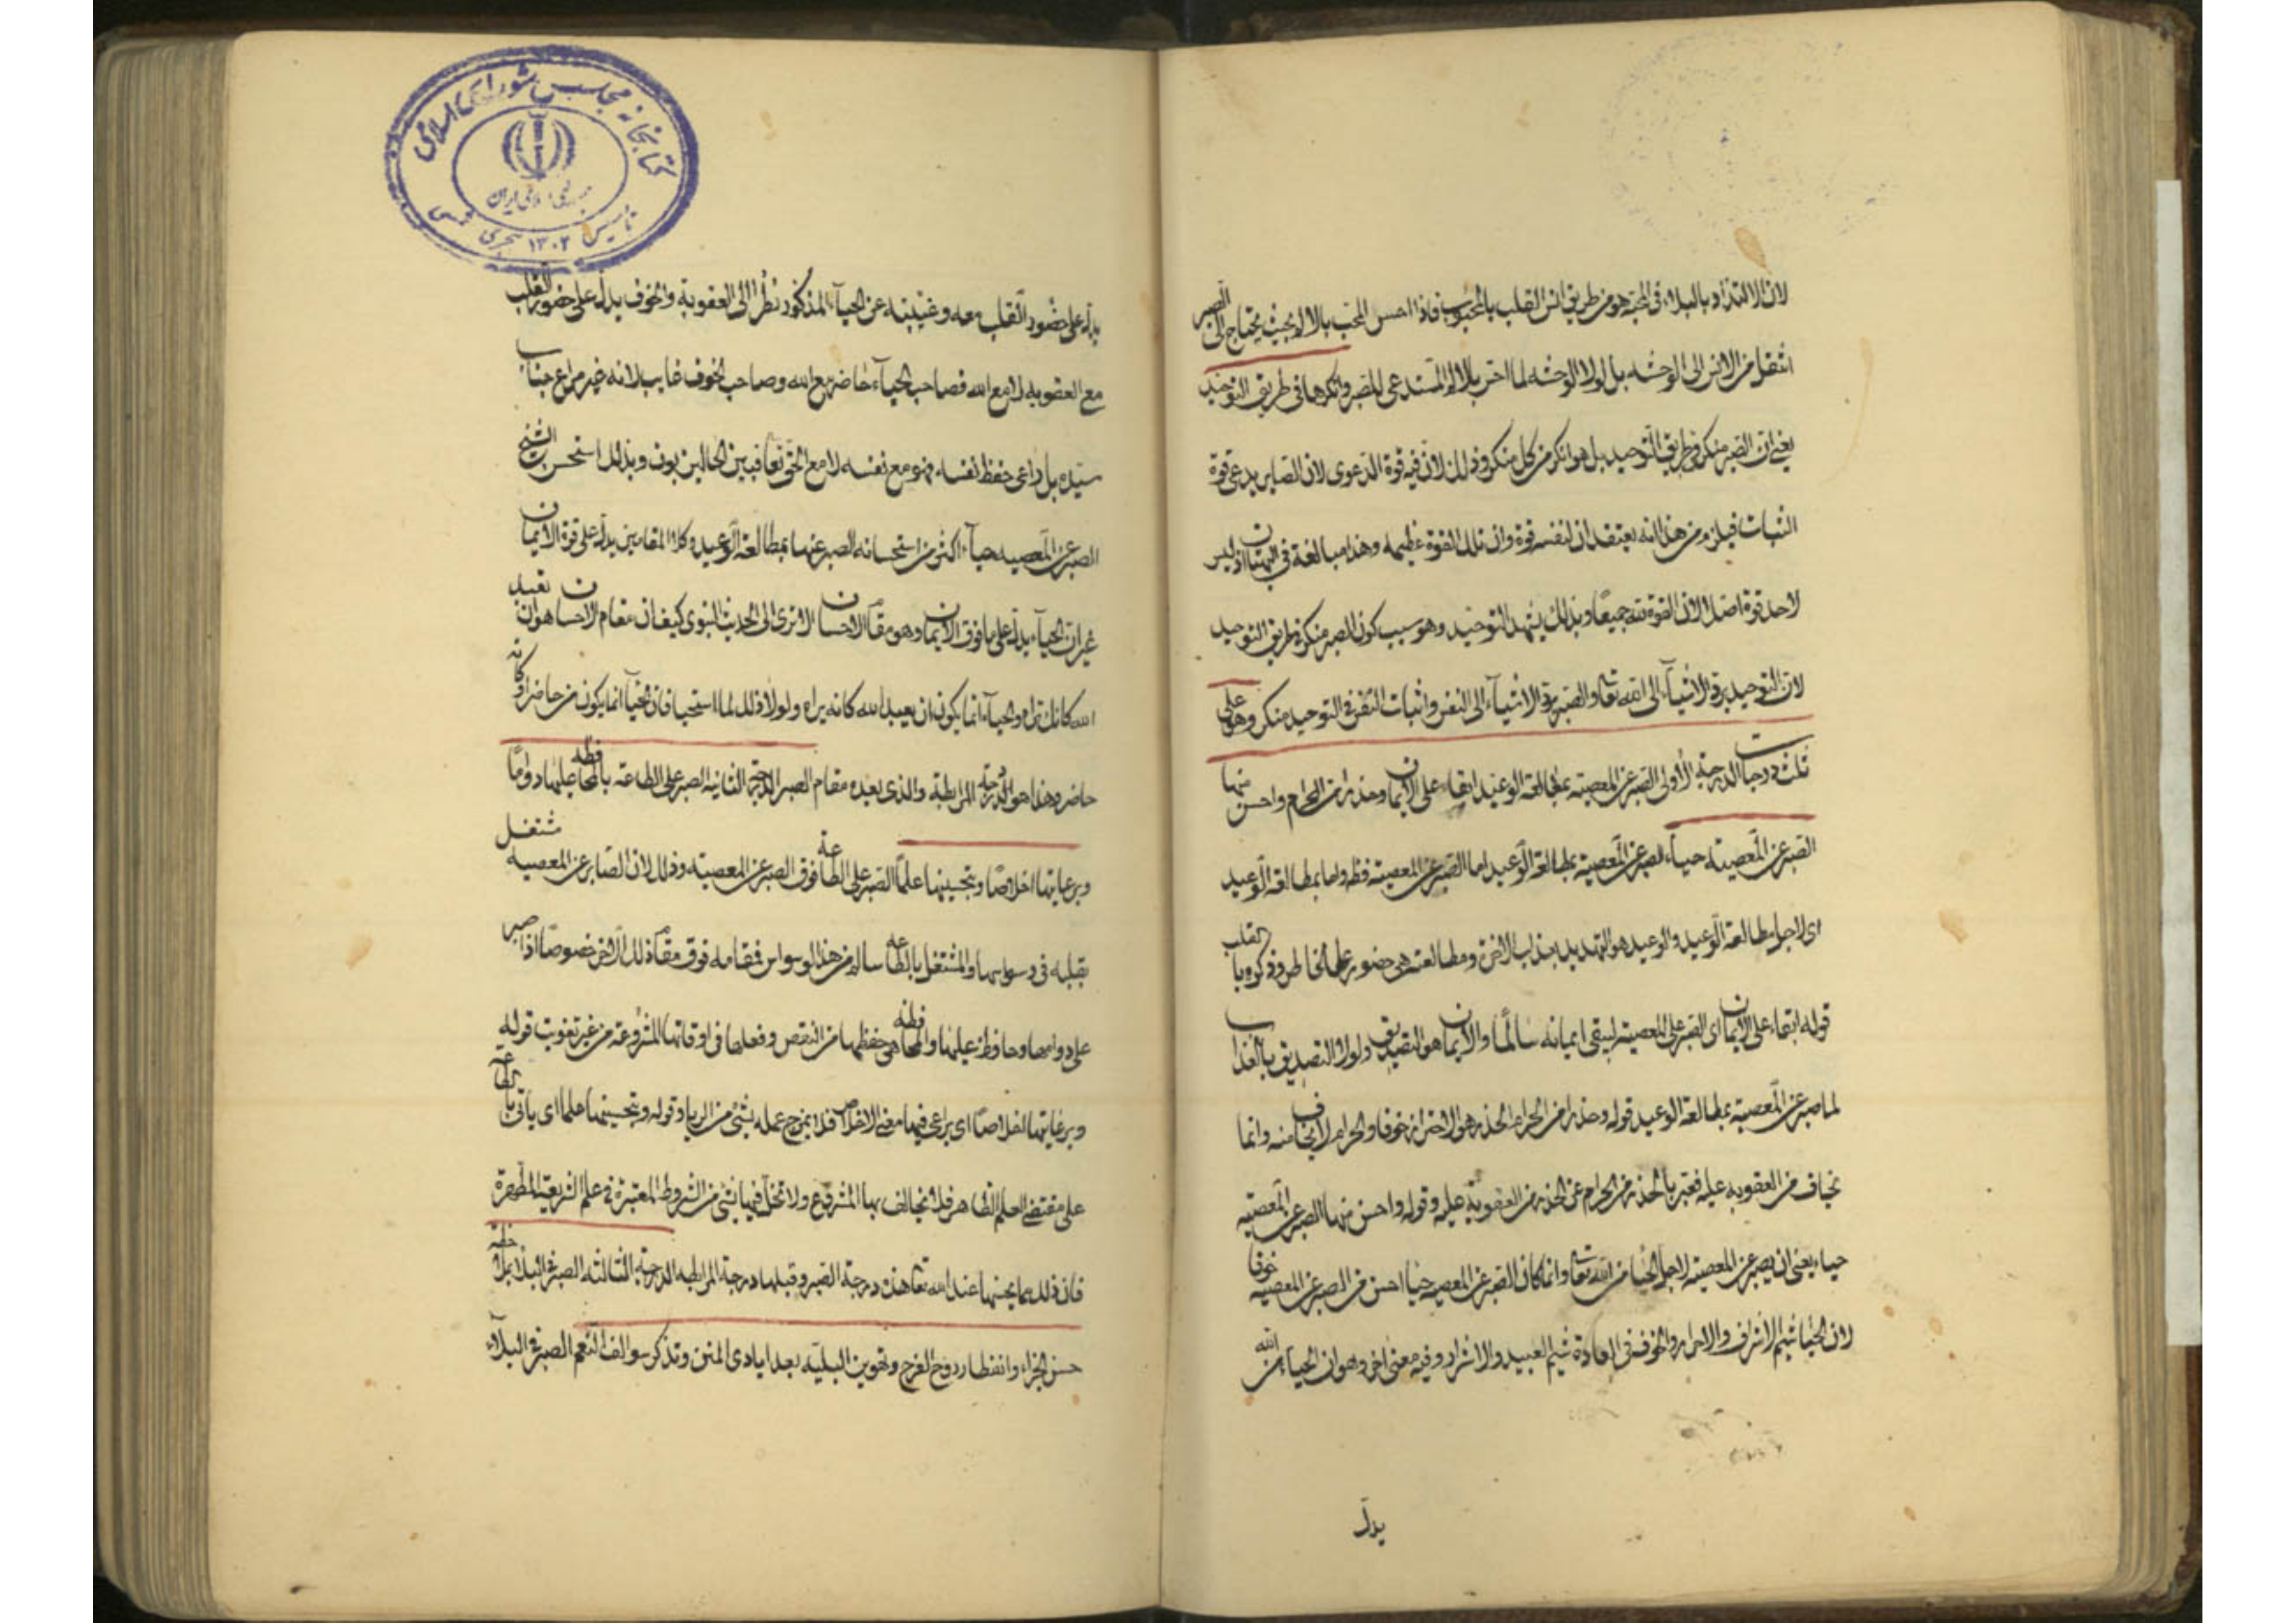 لان الالتذاذ بالبلاء فى المحبة هو من طريق انس القلب بالمحبوب فاذا احسن المحب بالالم بحيث يحتاج الى الصبر
انتقل من الانس الى الوحشه بل لولا الوحشه لما احتر بالالم المستدعى للصبر وانكرها فى طريق التوحيد
يعنى ان الصبر منكر فى طريق التوحيد بل هو انكر من كل منكر وذلك لان فيه قوة الدعوى لان الصابر يدعى قوة
الثبات فيلزم من هذا انه يعتقد ان لنفسه قوة وان تلك القوة عظيمه وهذا مبالغة فى البهتان اذ ليس
لاحد قوة اصلا لان القوة لله جميعا وبذلك يشهد التوحيد وهو سبب كون الصبر منكرا فى طريق التوحيد
لان التوحيد يرد الاشيآء الى الله تعا والصبر يرد الاشيآء الى النفس واثبات النفس فى التوحيد منكر وهو على
ثلث درجات الدرجة الأولى الصبر عن المعصيته بمطالعة الوعيد ابقاء على الايمان وحذرا من الحرام واحسن منها
الصبر عن المعصيته حياء الصبر عن المعصية بمطالعة الوعيد اما الصبر عن المعصيته فظ واما بمطالعة الوعيد
اى لاجل مطالعة الوعيد والوعيد هو التهديد بعذاب الاخرة ومطالعته هى حضوره على الخاطر وذكره بالقلب
قوله ابقاء على الايمان اى الصبر على المعصيته ليبقى ايمانه سالما والايمان هو التصديق ولولا التصديق بالعذاب
لما صبر عن المعصية بمطالعة الوعيد قوله وحذرا من الحرام الحذر هو الاحتراز خوفا والحرام لا يخاف منه وانما
يخاف من العقوبه عليه فعبر بالحذر من الحرام عن الحذر من العقوبة عليه وقوله واحسن منها الصبر عن المعصية
حياء يعنى ان يصبر عن المعصيته لاجل الحيا من الله تعا وانما كان الصبر عن المعصيه حيا احسن من الصبر عن المعصيه خوفا
لان الحيا شيم الاشراف والاحرار والخوف فى العادة شيم العبيد والاشرار وفيه معنى اخر وهو ان الحياء من الله
يدل
كتابخانه مجلس شوراى اسلامى
جمهورى اسلامى ايران
تاسيس ١٣٠٢ هجرى شمسى
يدل على حضور القلب معه وغيبته عن الحيآء المذكور نظرا الى العقوبة والخوف يدل على حضور القلب
مع العقوبه لا مع الله فصاحب الحيآء حاضر مع الله وصاحب الخوف غايب لانه غير مراع جناب
سيده بل راعى حفظ نفسه فهو مع نفسه لا مع الحق تعا فبين الحالين بون وبذلك استحسن الشيخ
الصبر عن المعصيه حيآء اكثر من استحسانه الصبر عنها بمطالعة الوعيد وكلا المقامين يدل على قوة الايمان
غير ان الحيآء يدل على ما فوق الايمان وهو مقام الاحسان الا ترى الى الحديث النبوى كيف ان مقام الاحسان هو ان تعبد
الله كانك تراه والحيآء انما يكون ان يعبد الله كانه يراه ولولا ذلك لما استحيا فان الحيآ انما يكون من حاضر او كانه
حاضر وهذا هو الدرجة المرابطة والذى بعده مقام الصبر الدرجة الثانية الصبر على الطاعة بالمحافظه عليها دواما
وبرعايتها اخلاصا وبتحسينها علما الصبر على الطاعة فوق الصبر عن المعصيته وذلك لان الصابر عن المعصيه مشتغل
بقلبه فى وسواسها والمشتغل بالطاعه سالم من هذا الوسواس فمقامه فوق مقام ذلك الاخر خصوصا اذا صبر
على دوامها وحافظ عليها والمحافظه هى حفظها من النقص وفعلها فى اوقاتها المشروعة من غير تفويت قوله
وبرعايتها اخلاصا اى يراعى فيها معنى الاخلاص فلا يمزج عمله بشئ من الرياء وقوله وبتحسينها علما اى ياتى بالطاعة
على مقتضى العلم الظاهر فلا يخالف بها المشروع ولا تخل فيها بشئ من الشروط المعتبرة فى علم الشريعة المطهرة
فان ذلك مما يحسنها عند الله تعا هذه درجة الصبر وقبلها درجة المرابطه الدرجة الثالثه الصبر فى البلاء بملاحظة
حسن الجزاء وانتظار روح الفرج وتهوين البليه بعد ايادى المنن وتذكر سوالف النعم الصبر فى البلآء